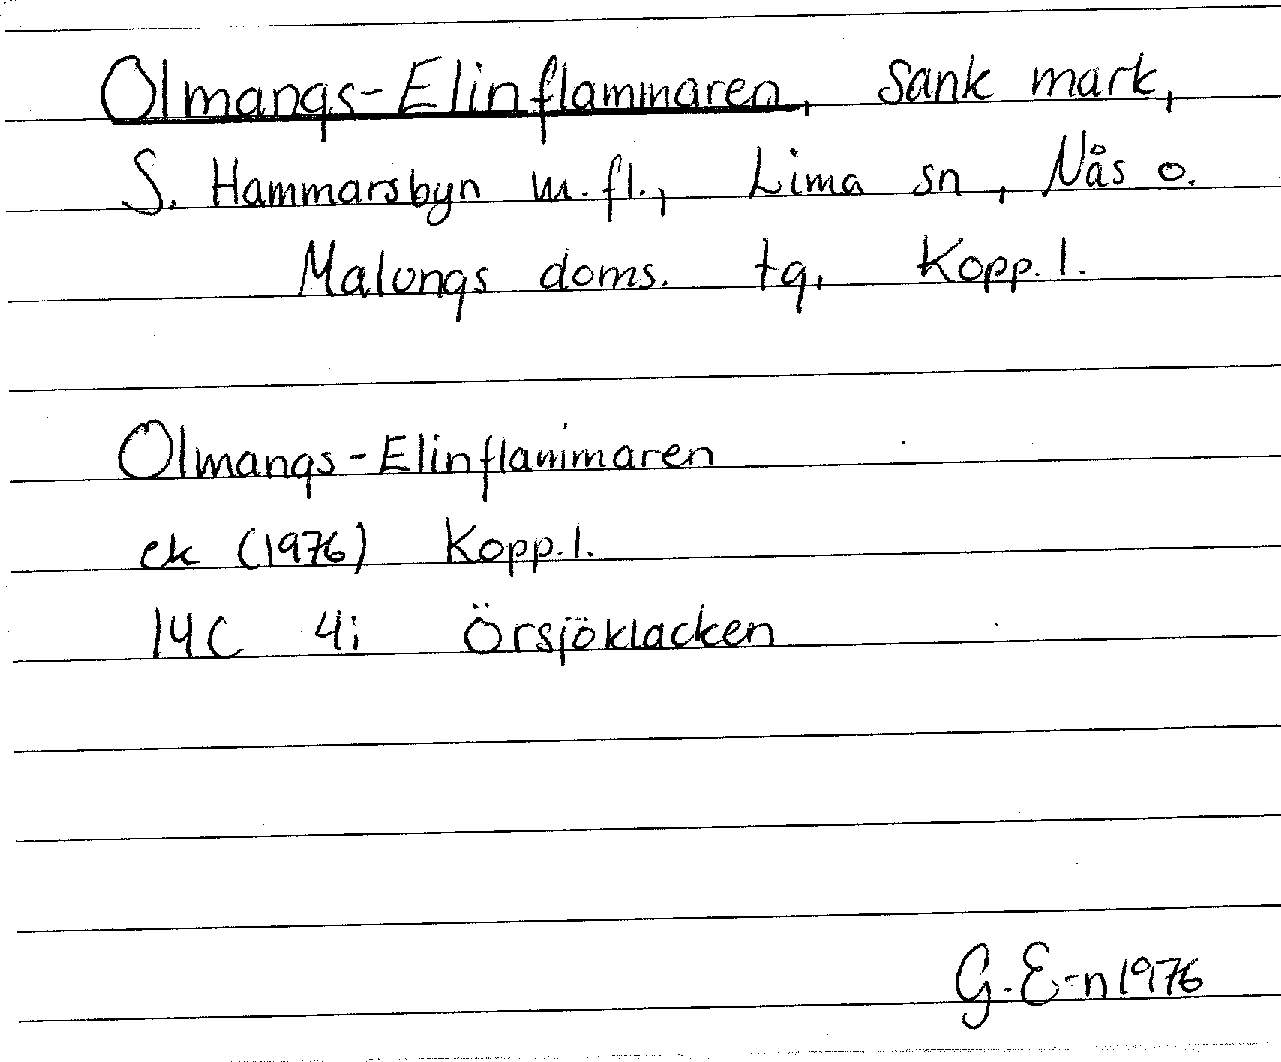 Olmangs-Elinflammaren, Sank mark,
S. Hammarsbyn m.fl., Lima sn, Nås o.
Malungs doms. tg, Kopp.l.
Olmangs-Elinflammaren
ek (1976) Kopp.l.
14C 4i Örsjöklacken
G.E-n 1976